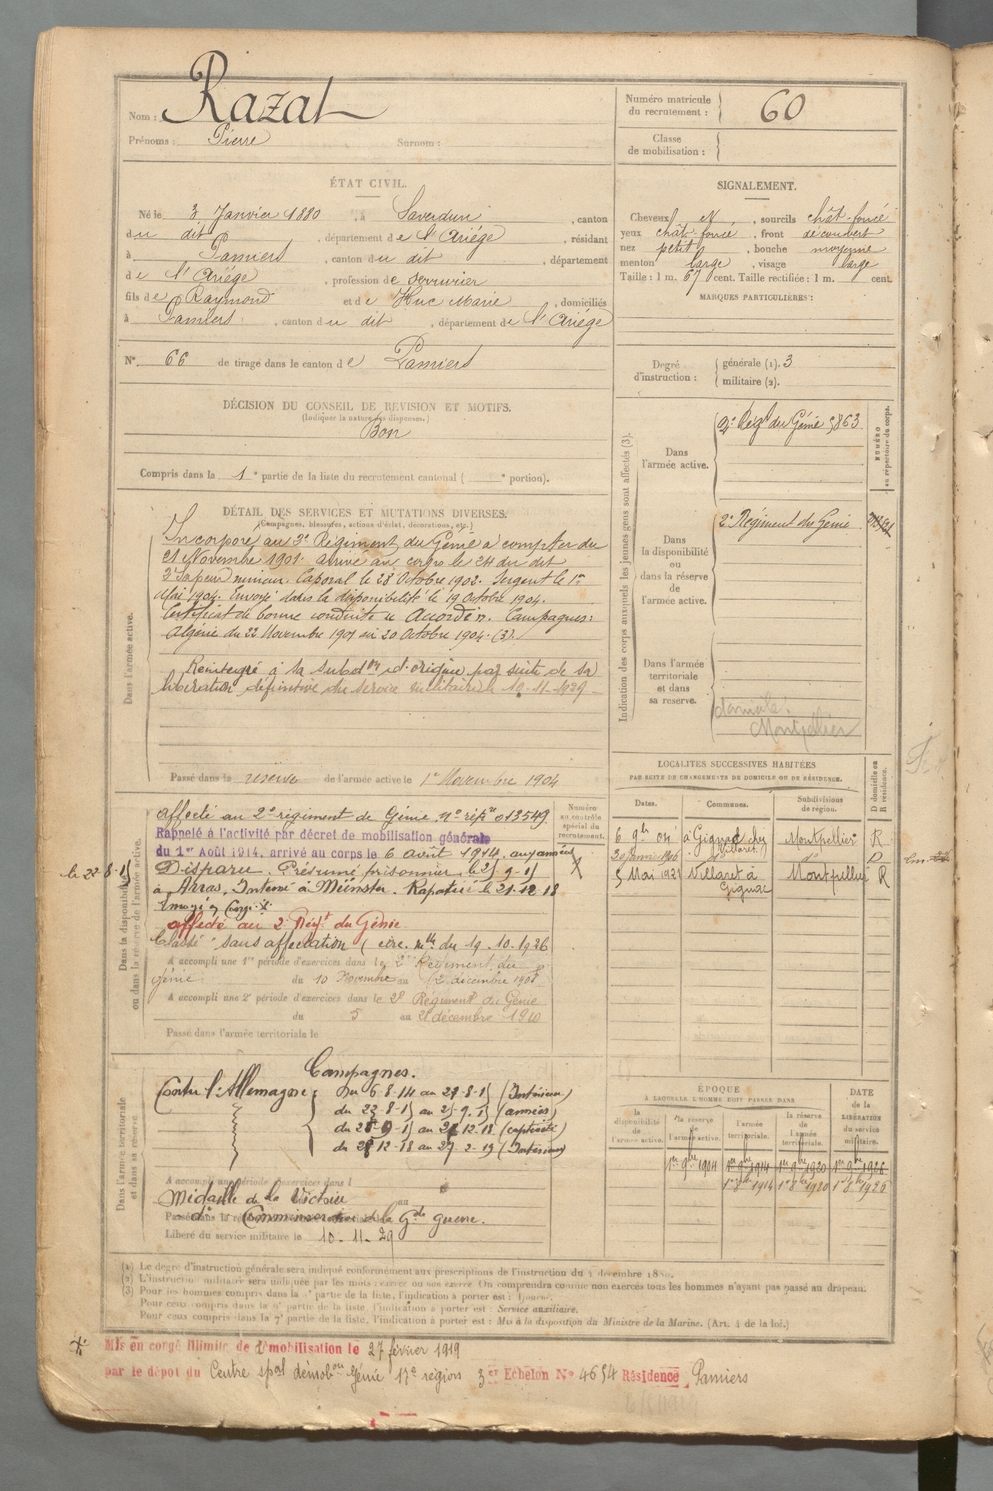 Nom : Razat
Prénoms : Pierre Surnom :
Numéro matricule du recrutement : 60
Classe de mobilisation :
ÉTAT CIVIL.
Né le 3 Janvier 1880, à Saverdun, canton
du dit, département de l'Ariége, résidant
à Pamiers, canton du dit, département
de l'Ariége, profession de serrurier
fils de Raymond et de Huc Marie, domiciliés
à Pamiers, canton du dit, département de l'Ariége
N° 66 de tirage dans le canton de Pamiers
SIGNALEMENT.
Cheveux et, sourcils chât-foncé
yeux chât-foncé, front découvert
nez petit, bouche moyenne
menton large, visage large
Taille : 1 m. 67 cent. Taille rectifiée : 1 m. cent.
MARQUES PARTICULIÈRES :
Degré d'instruction : générale (1). 3
militaire (2).
DÉCISION DU CONSEIL DE REVISION ET MOTIFS.
(Indiquer la nature des dispenses.)
Bon
Compris dans la 1e partie de la liste du recrutement cantonal ( e portion).
DÉTAIL DES SERVICES ET MUTATIONS DIVERSES.
(Campagnes, blessures, actions d'éclat, décorations, etc.)
Dans l'armée active.
Incorporé au 2e Régiment du Génie à compter du
21 Novembre 1901. arrivé au corps le 24 du dit
2e Sapeur mineur. Caporal le 28 Octobre 1902. Sergent le 1er
Mai 1904. Envoyé dans la disponibilité le 19 Octobre 1904.
Certificat de bonne conduite "Accordé". Campagnes:
Algérie du 22 Novembre 1901 au 20 Octobre 1904. (3).
Réintégré à sa subdon d'origine par suite de sa
libération définitive du service militaire 10-11-1929
Passé dans la réserve de l'armée active le 1er Novembre 1904
Indication des corps auxquels les jeunes gens sont affectés (3).
NUMÉRO au répertoire du corps.
Dans l'armée active.
2e Régt du Génie 5863
Dans la disponibilité ou dans la réserve de l'armée active.
2e Régiment du Génie
Dans l'armée territoriale et dans sa reserve.
domicile.
Montpellier
Dans la disponibilité ou dans la réserve de l'armée active.
Numéro au contrôle spécial du recrutement.
affecté au 2e régiment de Génie, no répre 013549
Rappelé à l'activité par décret de mobilisation générale
du 1er Août 1914, arrivé au corps le 6 août 1914. aux armées
le 22-8-15
Disparu. Présumé prisonnier le 25-9-15 X
à Arras. Interné à Münster. Rapatrié le 21-12-18
envoyé en Congé
affecté au 2e Régt du Génie
Classé "sans affectation" (circ. mlle du 19.10.1926
A accompli une 1re période d'exercices dans le 2e Régiment du
génie du 10 Novembre au 2 décembre 190
A accompli une 2e période d'exercices dans le 2e Régiment du Génie
du 5 au 21 décembre 1910
Passé dans l'armée territoriale le
LOCALITÉS SUCCESSIVES HABITÉES
PAR SUITE DE CHANGEMENTS DE DOMICILE OU DE RÉSIDENCE.
Dates. Communes. Subdivisions de région. D domicile ou R résidence.
6 9bre 04 à Gignac Montpellier R
30 1906 do do D
5 Mai 1921 Villaret à Gignac Montpellier R
Dans l'armée territoriale et dans sa réserve.
Campagnes.
Contre l'Allemagne du 6-8-14 au 21-8-15 (Intérieur)
du 22-8-15 au 25-9-15 (armées)
du 26-9-15 au 21-12-18 (captivité)
du 22-12-18 au 27-2-19 (Intérieur)
A accompli une période d'exercices dans l
Médaille de la Victoire au
do Commémorative de la Gde guerre.
Libéré du service militaire le 10-11-29
ÉPOQUE
À LAQUELLE L'HOMME DOIT PASSER DANS
DATE de la LIBÉRATION du service militaire.
la disponibilité de l'armée active. la réserve de l'armée active. l'armée territoriale. la réserve de l'armée territoriale.
1er 9bre 1904 1er 9bre 1914 1er 9bre 1920 1er 9bre 1926
1er 8bre 1914 1er 8bre 1920 1er 8bre 1926
(1) Le degré d'instruction générale sera indiqué conformément aux prescriptions de l'instruction du 4 décembre 1889.
(2) L'instruction militaire sera indiquée par les mots : exercé ou non exercé. On comprendra comme non exercés tous les hommes n'ayant pas passé au drapeau.
(3) Pour les hommes compris dans la partie de la liste, l'indication à porter est :
Pour ceux compris dans la 6e partie de la liste, l'indication à porter est : Service auxiliaire.
Pour ceux compris dans la 7e partie de la liste, l'indication à porter est : Mis à la disposition du Ministre de la Marine. (Art. 4 de la loi.)
Mis en congé illimité de démobilisation le 27 février 1919
par le dépôt du Centre spal démobon Génie 17e région 3er Echelon No 4654 Résidence Pamiers